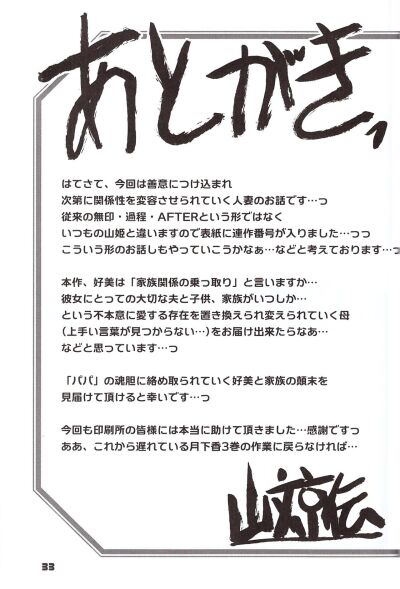 あとがきっ
はてさて、今回は善意につけ込まれ
次第に関係性を変容させられていく人妻のお話です…っ
従来の無印・過程・AFTERという形ではなく
いつもの山姫と違いますので表紙に連作番号が入りました…っっ
こういう形のお話しもやっていこうかなぁ…などと考えております…っ
本作、好美は「家族関係の乗っ取り」と言いますか…
彼女にとっての大切な夫と子供、家族がいつしか…
という不本意に愛する存在を置き換えられ変えられていく母
（上手い言葉が見つからない…）をお届け出来たらなあ…
などと思っています…っ
「パパ」の魂胆に絡め取られていく好美と家族の顛末を
見届けて頂けると幸いです…っ
今回も印刷所の皆様には本当に助けて頂きました…感謝ですっ
ああ、これから遅れている月下香3巻の作業に戻らなければ…
山文京伝
33